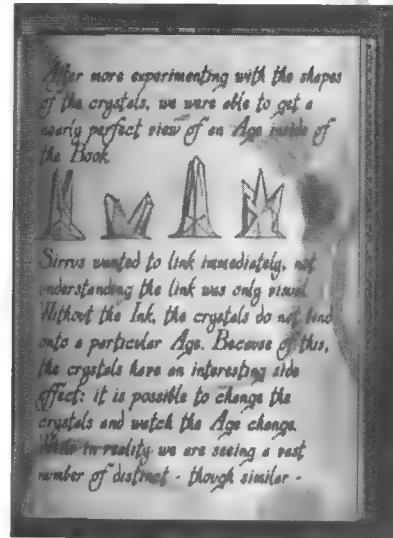 After more experimenting with the shapes
of the crystals, we were able to get a
nearly perfect view of an Age inside of
the Book.
Sirrus wanted to link immediately, not
understanding the link was only visual.
Without the Ink, the crystals do not bind
onto a particular Age. Because of this,
the crystals have an interesting side
effect: it is possible to change the
crystals and watch the Age change.
While in reality we are seeing a vast
number of distinct - though similar -